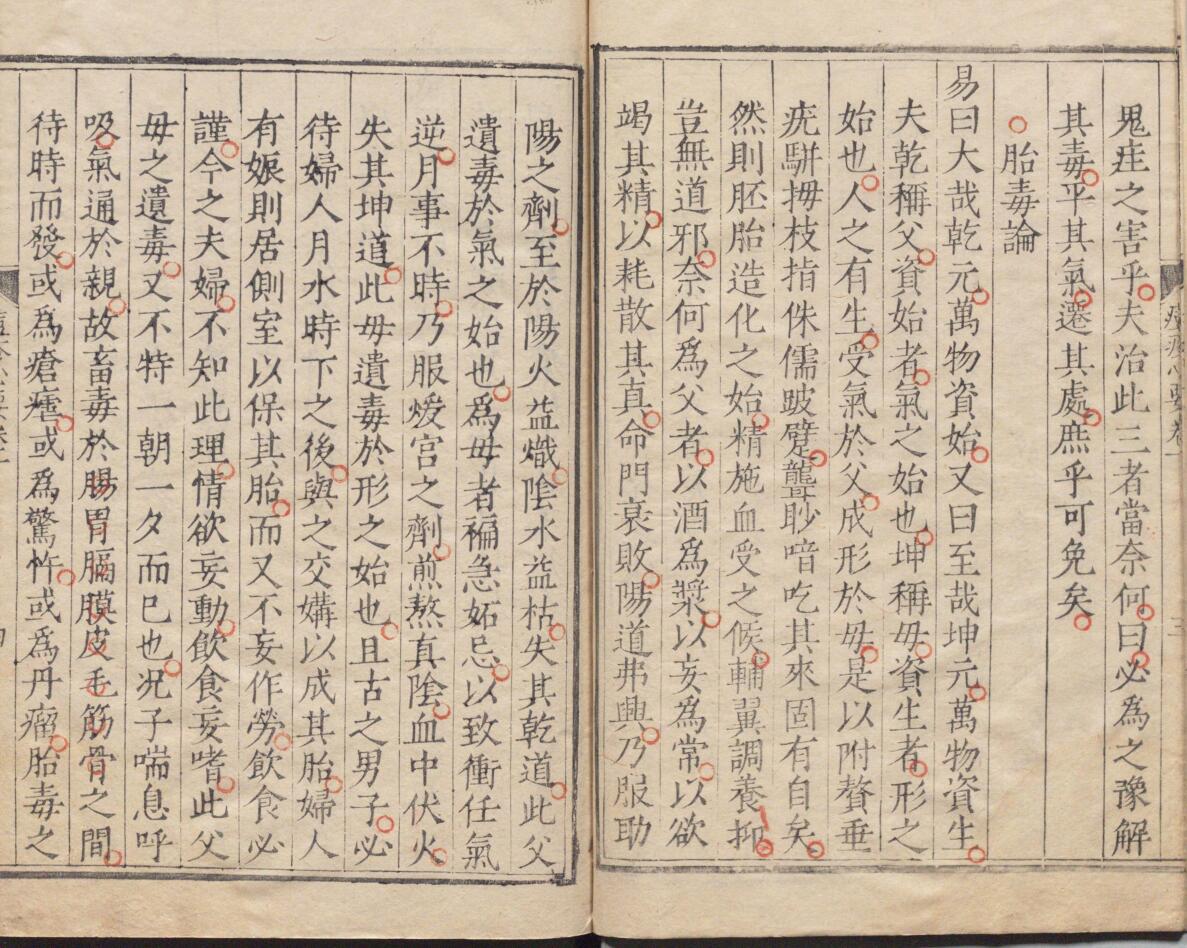 鬼疰之害乎夫治此三者當奈何曰必為之豫解
其毒平其氣遷其處庶乎可免矣
胎毒論
易曰大哉乾元萬物資始又曰至哉坤元萬物資生
夫乾稱父資始者氣之始也坤稱毋資生者形之
始也人之有生受氣於父成形於毋是以附贅垂
疣駢拇枝指侏儒跛躄聾眇喑吃其來固有自矣
然則胚胎造化之始精施血受之候輔翼調養抑
豈無道邪奈何為父者以酒為漿以妄為常以欲
竭其精以耗散其真命門衰敗陽道弗興乃服助
陽之劑至於陽火益熾陰水益枯失其乾道此父
遺毒於氣之始也為毋者褊急妬忌以致衝任氣
逆月事不時乃服煖宮之劑煎熬真陰血中伏火
失其坤道此毋遺毒於形之始也且古之男子必
待婦人月水時下之後與之交媾以成其胎婦人
有娠則居側室以保其胎而又不妄作勞飲食必
謹今之夫婦不知此理情欲妄動飲食妄嗜此父
毋之遺毒又不特一朝一夕而巳也况子喘息呼
吸氣通於親故畜毒於腸胃膈膜皮毛筋骨之間
待時而發或為瘡㾦或為驚忤或為丹瘤胎毒之